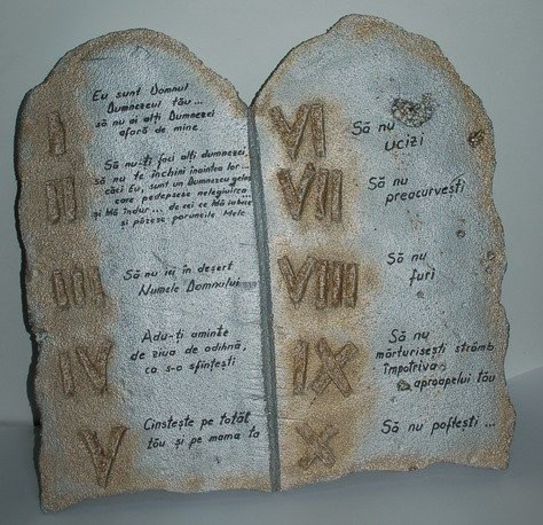 I
Eu sunt Domnul
Dumnezeul tău...
să nu ai alți Dumnezei
afară de mine
II
Să nu-ți faci alți dumnezei,
să nu te închini înaintea lor...
căci Eu, sunt un Dumnezeu gelos
care pedepsesc nelegiuirea...
și Mă îndur... de cei ce Mă iubesc
și păzesc poruncile Mele
III
Să nu iei în deșert
Numele Domnului
IV
Adu-ți aminte
de ziua de odihnă,
ca s-o sfințești
V
Cinstește pe tatăl
tău și pe mama ta
VI
Să nu
ucizi
VII
Să nu
preacurvești
VIII
Să nu
furi
IX
Să nu
mărturisești strâmb
împotriva
aproapelui tău
X
Să nu poftești ...